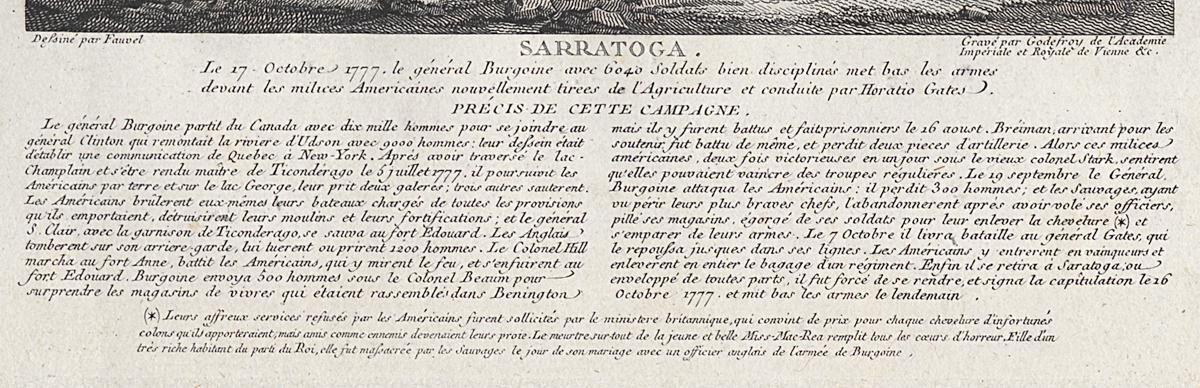 Dessiné par Fauvel
SARRATOGA.
Gravé par Godefroy de l'Academie
Impériale et Royale de Vienne &c.
Le 17 Octobre 1777. le général Burgoine avec 6040 Soldats bien disciplinés met bas les armes
devant les milices Americaines nouvellement tirées de l'Agriculture et conduite par Horatio Gates.
PRÉCIS DE CETTE CAMPAGNE.
Le général Burgoine partit du Canada avec dix mille hommes pour se joindre au
général Clinton qui remontait la riviere d'Udson avec 9000 hommes; leur dessein était
d'établir une communication de Quebec à New-York. Après avoir traversé le lac-
Champlain et s'être rendu maître de Ticonderago le 5 juillet 1777, il poursuivit les
Américains par terre et sur le lac George, leur prit deux galeres; trois autres sauterent.
Les Américains brûlerent eux-mêmes leurs bateaux chargés de toutes les provisions
qu'ils emportaient, détruisirent leurs moulins et leurs fortifications; et le général
S. Clair, avec la garnison de Ticonderago, se sauva au fort Edouard. Les Anglais
tomberent sur son arriere-garde, lui tuerent ou prirent 1200 hommes. Le Colonel Hill
marcha au fort Anne, battit les Américains, qui y mirent le feu, et s'enfuirent au
fort Edouard. Burgoine envoya 500 hommes sous le Colonel Beaum pour
surprendre les magasins de vivres qui étaient rassemblés dans Benington
mais ils y furent battus et faits prisonniers le 16 aoust. Breiman, arrivant pour les
soutenir, fut battu de même, et perdit deux pieces d'artillerie. Alors ces milices
américaines, deux fois victorieuses en un jour sous le vieux colonel Stark, sentirent
qu'elles pouvaient vaincre des troupes régulieres. Le 19 septembre le Général
Burgoine attaqua les Américains: il perdit 300 hommes; et les Sauvages, ayant
vu périr leurs plus braves chefs, l'abandonnerent après avoir volé ses officiers,
pillé ses magasins, égorgé de ses soldats pour leur enlever la chevelure (*) et
s'emparer de leurs armes. Le 7 Octobre il livra bataille au général Gates, qui
le repoussa jusques dans ses lignes. Les Américains y entrerent en vainqueurs et
enleverent en entier le bagage d'un régiment. Enfin il se retira à Saratoga, ou
enveloppé de toutes parts, il fut forcé de se rendre, et signa la capitulation le 16
Octobre 1777. et mit bas les armes le lendemain.
(*) Leurs affreux services refusés par les Américains furent sollicités par le ministere britannique, qui convint de prix pour chaque chevelure d'infortunés
colons qu'ils apporteraient; mais amis comme ennemis devenaient leurs proie. Le meurtre sur-tout de la jeune et belle Miss-Mac-Rea remplit tous les cœurs d'horreur. Fille d'un
très riche habitant du parti du Roi, elle fut massacrée par les Sauvages le jour de son mariage avec un officier anglais de l'armée de Burgoine.